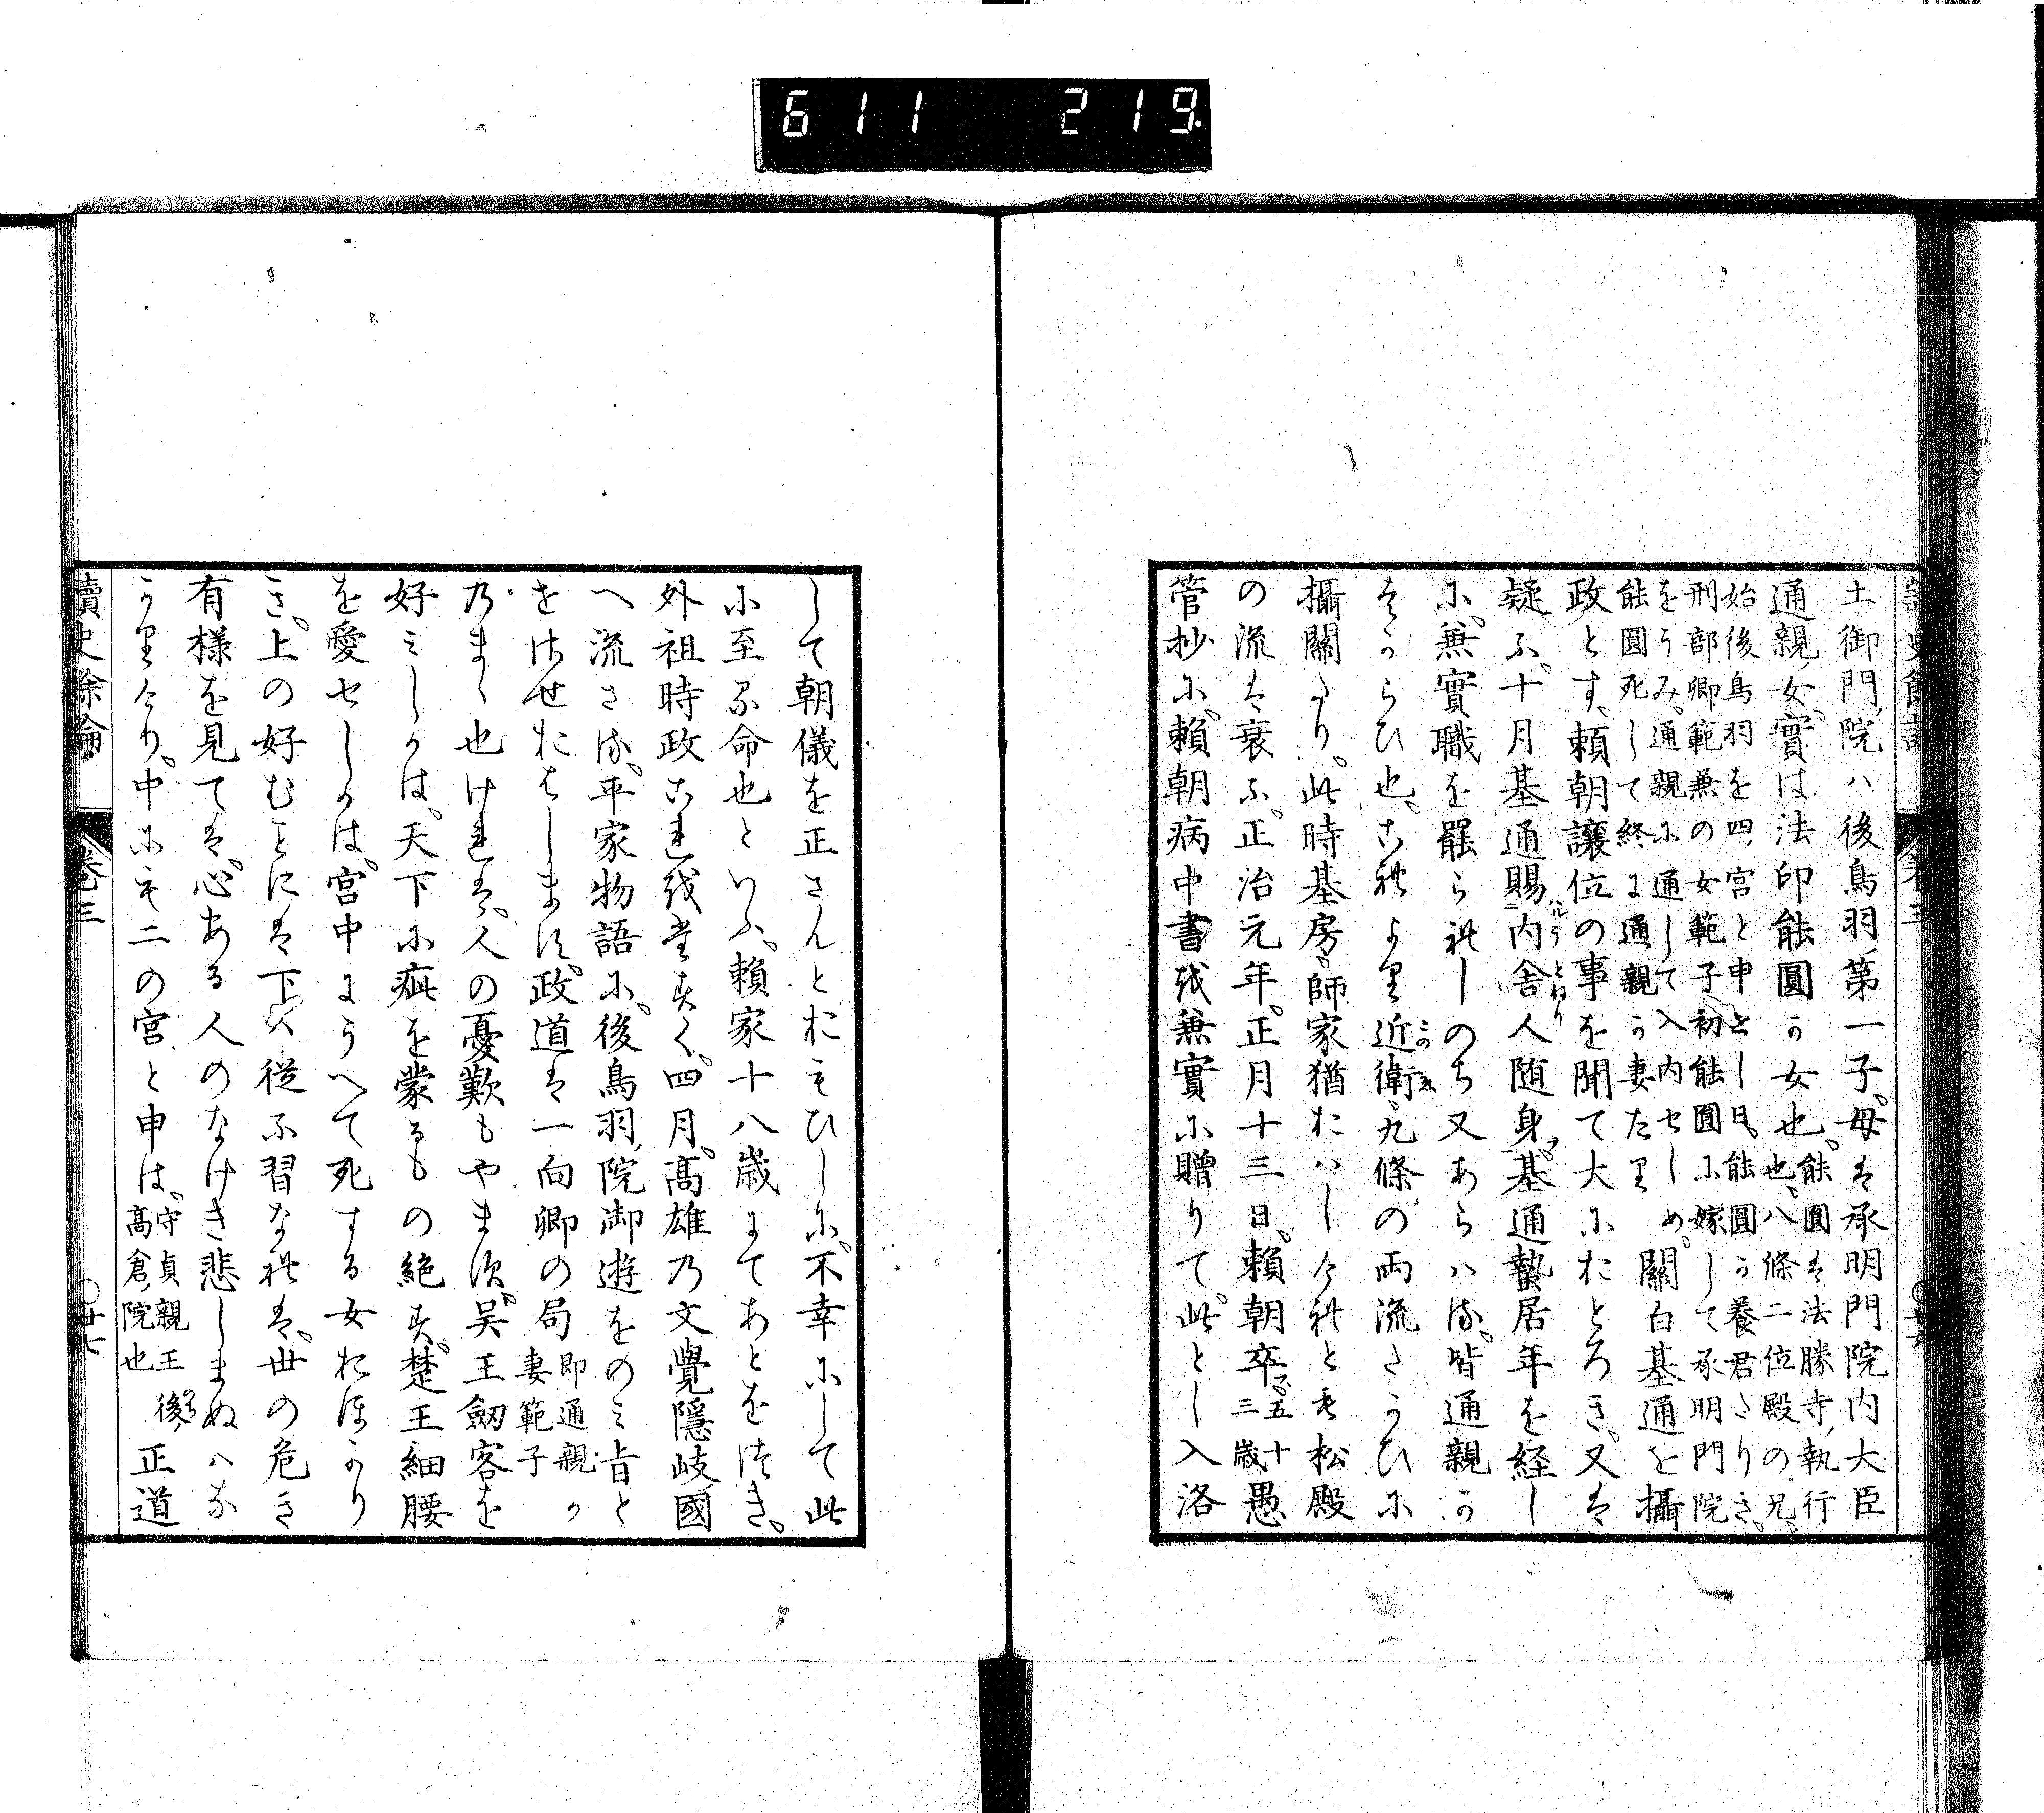 611 219
土御門ノ院ハ後鳥羽ノ第一子、母は承明門院内大臣
通親ノ女、實は法印能圓か女也。能圓は法勝寺ノ執行也、八條二位殿の兄、
始後鳥羽を四ノ宮と申とし日、能圓か養君たりき、
刑部卿範兼の女範子初能圓に嫁して承明門院
をうみ、通親に通して入内せしめ、
能圓死して終に通親か妻たり 關白基通を攝
政とす、頼朝讓位の事を聞て大におとろき、又は
疑ふ、十月基通賜ニ内舎人随身ヲ、基通蟄居年を経し
に、兼實職を罷られしのち又あらハる、皆通親か
はからひ也、これより近衛、九條の両流たかひに
攝關たり、此時基房、師家猶おハしけれとも松殿
の流は衰ふ、正治元年、正月十三日、頼朝卒ス、五十三歳 愚
管抄に、頼朝病中書を兼實に贈りて、此とし入洛
して朝儀を正さんとおもひしに、不幸にして此
に至る命也といふ、頼家十八歳にてあとをつき、
外祖時政これを先すく、四月、高雄乃文覺隱岐國
へ流さる、平家物語に、後鳥羽ノ院御遊をのミ旨と
をはせおはしまし、政道は一向卿の局 即通親か妻範子
乃まゝ也けれは、人の憂歎もやます、吴王劔客を
好ミしかは、天下に疵を蒙るもの絶す、楚王細腰
を愛せしかは、宮中にうへて死する女おほかり
き、上の好むことには下ハ従ふ習なれは、世の危き
有様を見ては、心ある人のなけき悲しまぬハな
かりけり、中にも二の宮と申は、守貞親王後ノ高倉ノ院也 正道
讀史餘論 卷三 ○廿七